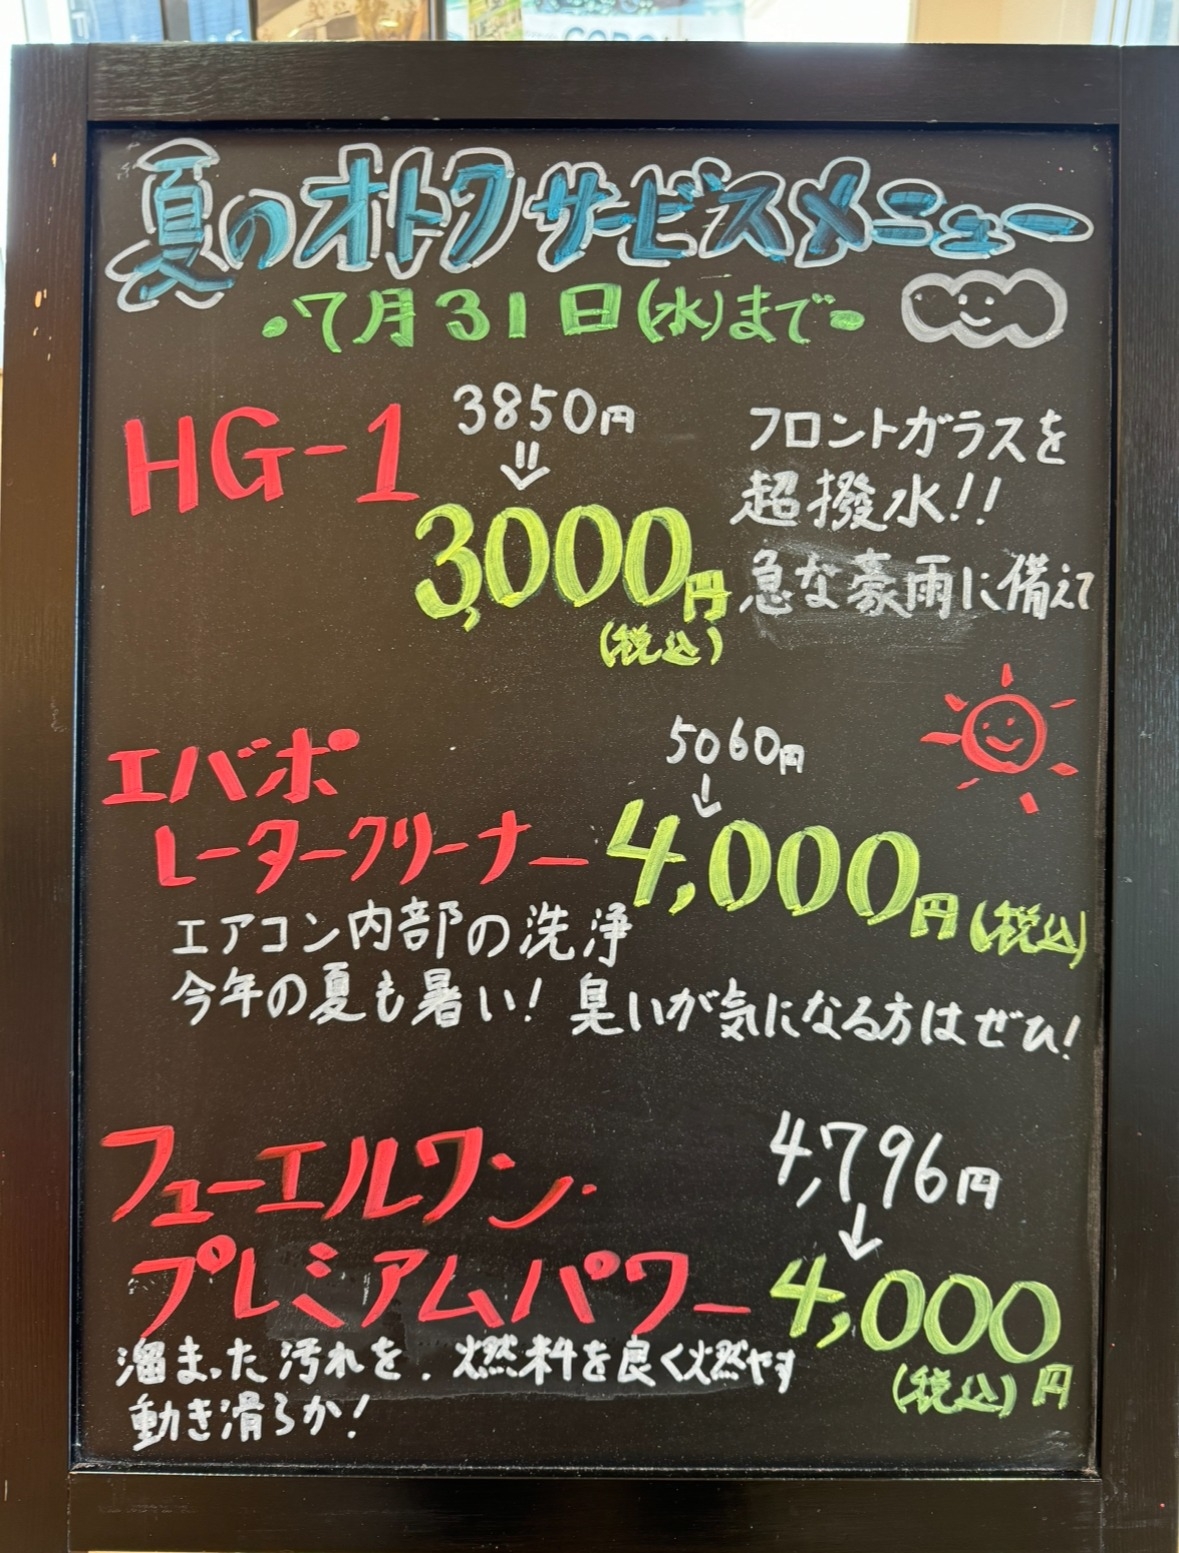 夏のオトクサービスメニュー
・7月31日(水)まで・
HG-1
3850円
⇓
3,000円
(税込)
フロントガラスを
超撥水!!
急な豪雨に備えて
エバポ
レータークリーナー
5060円
↓
4,000円(税込)
エアコン内部の洗浄
今年の夏も暑い! 臭いが気になる方はぜひ!
フューエルワン・
プレミアムパワー
4,796円
↓
4,000
(税込)円
溜まった汚れを、燃料を良く燃やす
動き滑らか!